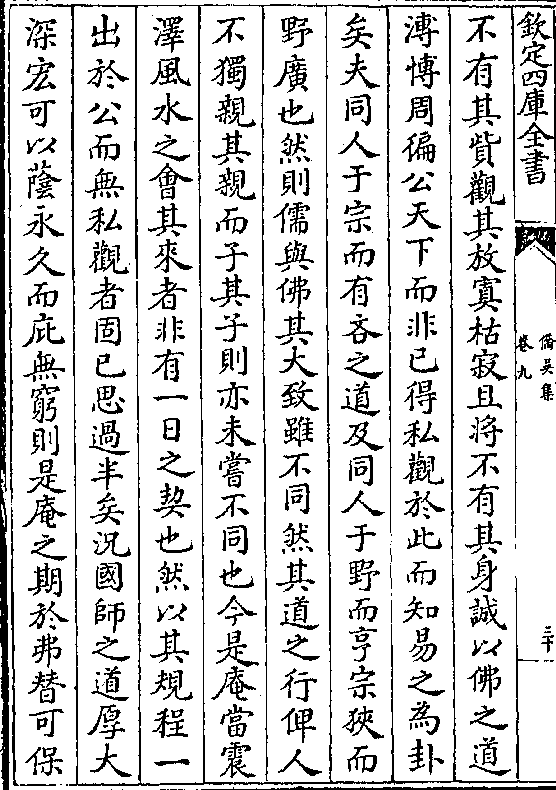 欽定四庫全書
僑吳集
卷九
三十
不有其貲觀其放寞枯寂且将不有其身誠以佛之道
溥博周徧公天下而非已得私觀於此而知易之為卦
矣夫同人于宗而有吝之道及同人于野而亨宗狹而
野廣也然則儒與佛其大致雖不同然其道之行俾人
不獨親其親而子其子則亦未嘗不同也今是庵當震
澤風水之會其來者非有一日之契也然以其規程一
出於公而無私觀者固已思過半矣況國師之道厚大
深宏可以蔭永久而庇無窮則是庵之期於弗替可保